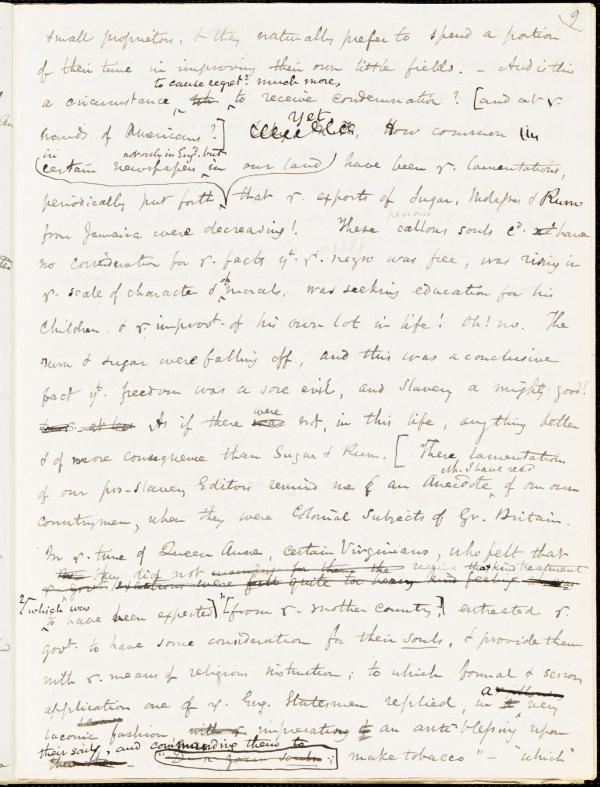 9
small proprietors, & they naturally prefer to spend a portion
of their time in improving their own little fields. – And is this
to cause regret? much more,
a circumstance, to receive condemnation? [and at yr
hands of Americans?] Yet How common
in not only in Engd. but
certain newspapers, in our land) have been yr lamentations,
periodically put forth, that yr exports of Sugar, Molasses & Rum
from Jamaica were decreasing! These callous souls cd. have
persons
no consideration for yr facts yt. yr negro was free, was rising in
yr scale of character & morals, was seeking education for his
Children, & yr improvt. of his own lot in life! Oh! no. The
rum & sugar were falling off, and this was a conclusive
fact yt. freedom was a sore evil, and Slavery a mighty good!
were
As if there was not, in this life, anything better
& of more consequence than Sugar & Rum. [These lamentations
wh. I have read
of our pro-slavery Editors remind me of an Anecdote, of our own
countrymen, when they were Colonial Subjects of Gr. Britain.
In yr time of Queen Anne, certain Virginians, who felt that
they did not the kind treatment
quite too heavy kind feeling
which was
to have been expected] [from yr mother Country,] entreated yr
govt. to have some consideration for their souls, & provide them
with yr means of religious instruction; to which formal & serious
application one of yr Eng. Statesmen replied, in a very
laconic fashion imprecating an anti-blessing upon
their souls, and commanding them to
"Damn your souls; make tobacco" – "which"